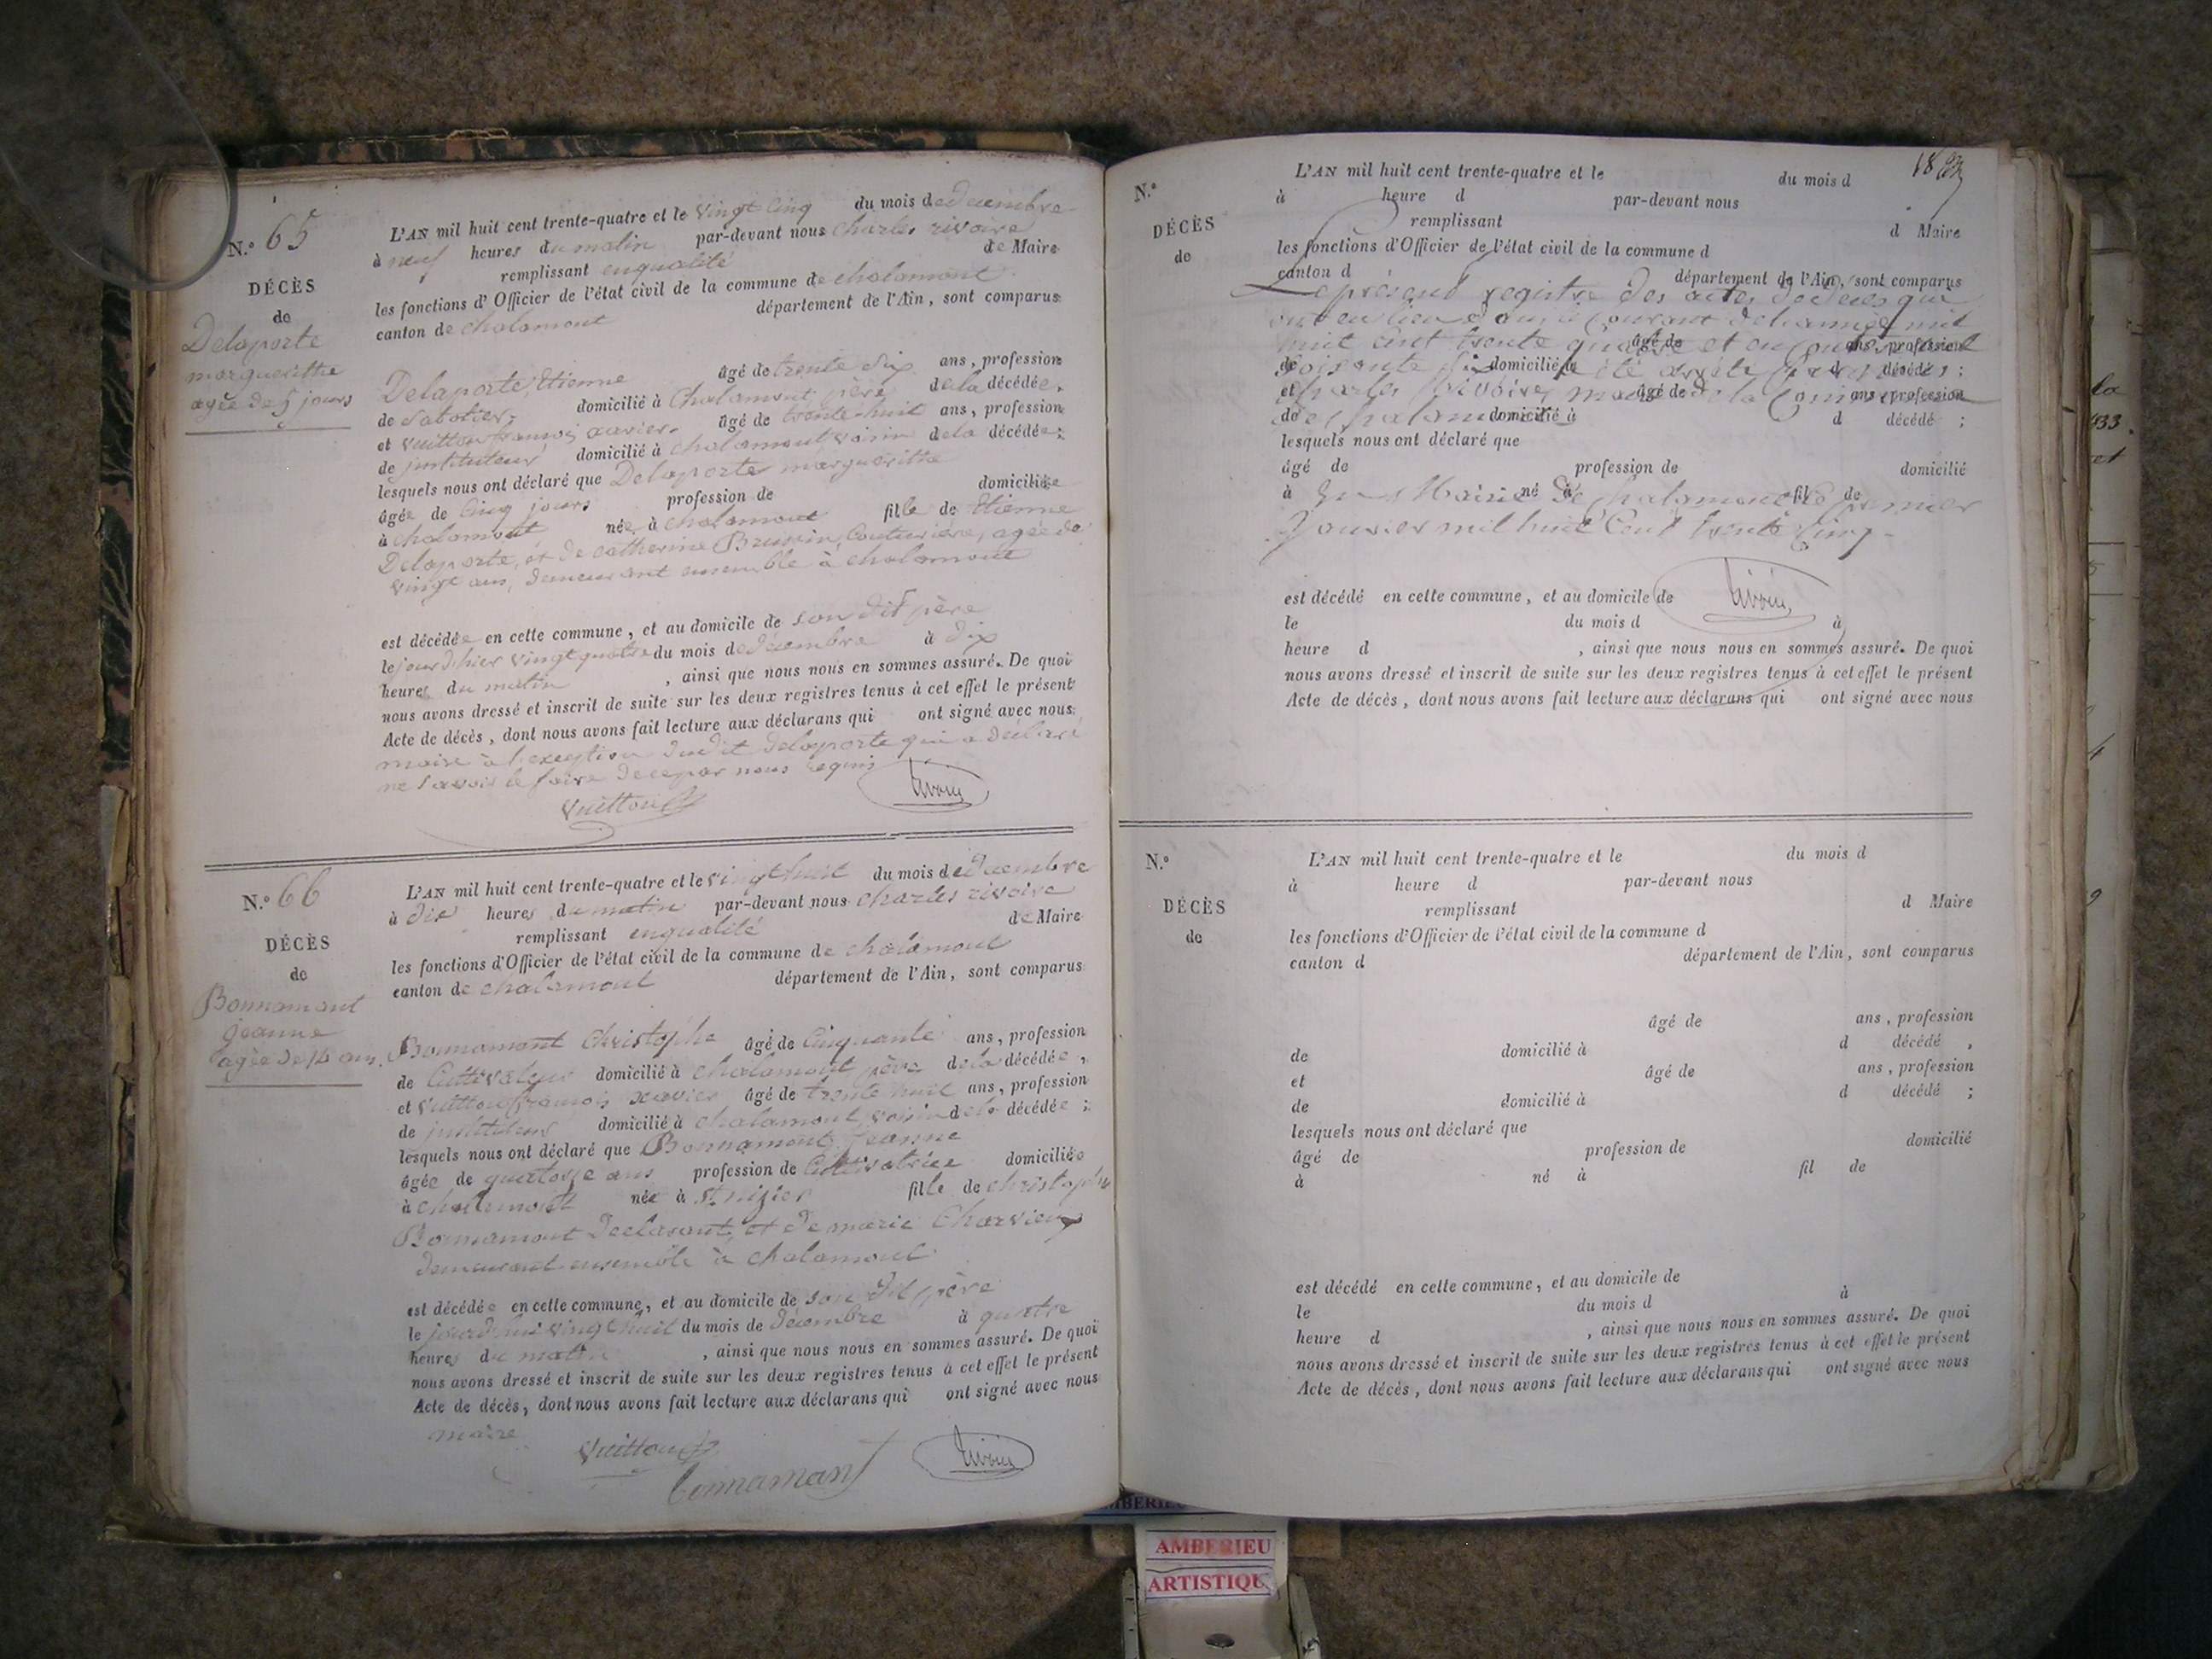 N.° 65
DÉCÈS
de
Delaporte
marguerithe
agée de 5 jours
L'AN mil huit cent trente-quatre et le vingt cinq du mois de decembre
à neuf heures du matin par-devant nous charles rivoire
remplissant enqualité de Maire
les fonctions d'Officier de l'état civil de la commune de chalamont
canton de chalamont département de l'Ain, sont comparus
Delaporte, Etienne âgé de trente dix ans, profession
de Sabotier, domicilié à Chalamont père de la décédée,
et Vuitton françois xavier, âgé de trente-huit ans, profession
de instituteur domicilié à chalamont voisin de la décédée;
lesquels nous ont déclaré que Delaporte marguerithe
âgée de cinq jours profession de domiciliée
à chalamont née à chalamont fille de Etienne
Delaporte, et de catherine Couturière, agée de
vingt ans, demeurant ensemble à chalamont
est décédée en cette commune, et au domicile de son dit père
le jour d'hier vingt quatre du mois de decembre à dix
heures du matin, ainsi que nous nous en sommes assuré. De quoi
nous avons dressé et inscrit de suite sur les deux registres tenus à cet effet le présent
Acte de décès, dont nous avons fait lecture aux déclarans qui ont signé avec nous
maire à l'exception dudit delaporte qui a déclaré
ne savoir le faire de ce par nous requis
Vuitton Rivoire
N.° 66
DÉCÈS
de
Bonnamant
jeanne
agée de 14 ans.
L'AN mil huit cent trente-quatre et le vingt huit du mois de decembre
à dix heures du matin par-devant nous charles rivoire
remplissant enqualité de Maire
les fonctions d'Officier de l'état civil de la commune de chalamont
canton de chalamont département de l'Ain, sont comparus
Bonnamant Christophe âgé de Cinquante ans, profession
de Cultivateur domicilié à chalamont père de la décédée,
et Vuitton françois xavier âgé de trente huit ans, profession
de instituteur domicilié à chalamont, voisin de la décédée;
lesquels nous ont déclaré que Bonnamant Jeanne
âgée de quatorze ans profession de Cultivatrice domiciliée
à chalamont née à St. nizier fille de christophe
Bonnamant declarant et de marie Charvieux
demeurant ensemble à chalamont
est décédée en cette commune, et au domicile de son dit père
le jourd'hui vingt huit du mois de décembre à quatre
heures du matin, ainsi que nous nous en sommes assuré. De quoi
nous avons dressé et inscrit de suite sur les deux registres tenus à cet effet le présent
Acte de décès, dont nous avons fait lecture aux déclarans qui ont signé avec nous
maire
Vuitton
bonnamant Rivoire
N.°
DÉCÈS
de
L'AN mil huit cent trente-quatre et le du mois d
à heure d par-devant nous
remplissant d Maire
les fonctions d'Officier de l'état civil de la commune d
canton d département de l'Ain, sont comparus
Le présent registre des actes de décès qui
ont eu lieu dans le courant de l'année mil
huit cent trente quatre et au nombre de
âgé de ans, profession
soixante six a été arrêté par nous
de domicilié à d décédé;
charles Rivoire, maire de la Commune
et âgé de ans, profession
de chalamont
de domicilié à d décédé;
lesquels nous ont déclaré que
âgé de profession de domicilié
à né à fil de
En Mairie de chalamont le premier
Janvier mil huit Cent trente cinq
Rivoire
est décédé en cette commune, et au domicile de
le du mois d à
heure d, ainsi que nous nous en sommes assuré. De quoi
nous avons dressé et inscrit de suite sur les deux registres tenus à cet effet le présent
Acte de décès, dont nous avons fait lecture aux déclarans qui ont signé avec nous
N.°
DÉCÈS
de
L'AN mil huit cent trente-quatre et le du mois d
à heure d par-devant nous
remplissant d Maire
les fonctions d'Officier de l'état civil de la commune d
canton d département de l'Ain, sont comparus
âgé de ans, profession
de domicilié à d décédé,
et âgé de ans, profession
de domicilié à d décédé;
lesquels nous ont déclaré que
âgé de profession de domicilié
à né à fil de
est décédé en cette commune, et au domicile de
le du mois d à
heure d, ainsi que nous nous en sommes assuré. De quoi
nous avons dressé et inscrit de suite sur les deux registres tenus à cet effet le présent
Acte de décès, dont nous avons fait lecture aux déclarans qui ont signé avec nous
AMBERIEU
ARTISTIQUE